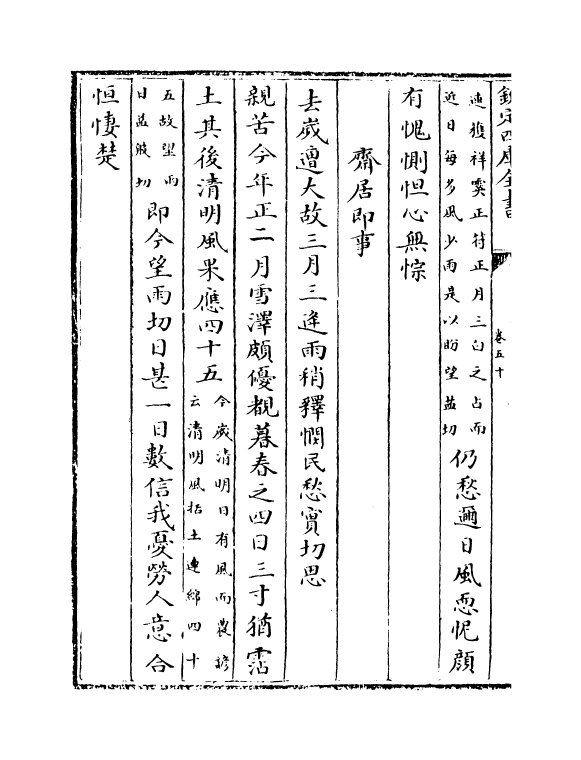 欽定四庫全書
卷五十
連獲祥霙正符正月三白之占而
近日每多風少雨是以盼望益切
仍愁邇日風悤怩顔
有愧惻怛心無悰
齋居即事
去歲遭大故三月三逢雨稍釋憫民愁實切思
親苦今年正二月雪澤頗優覩暮春之四日三寸猶霑
土其後清明風果應四十五
今歲清明日有風而農諺
云清明風拈土連綿四十
五故望雨
日益殷切
即今望雨切日甚一日數信我憂勞人意合
恒悽楚